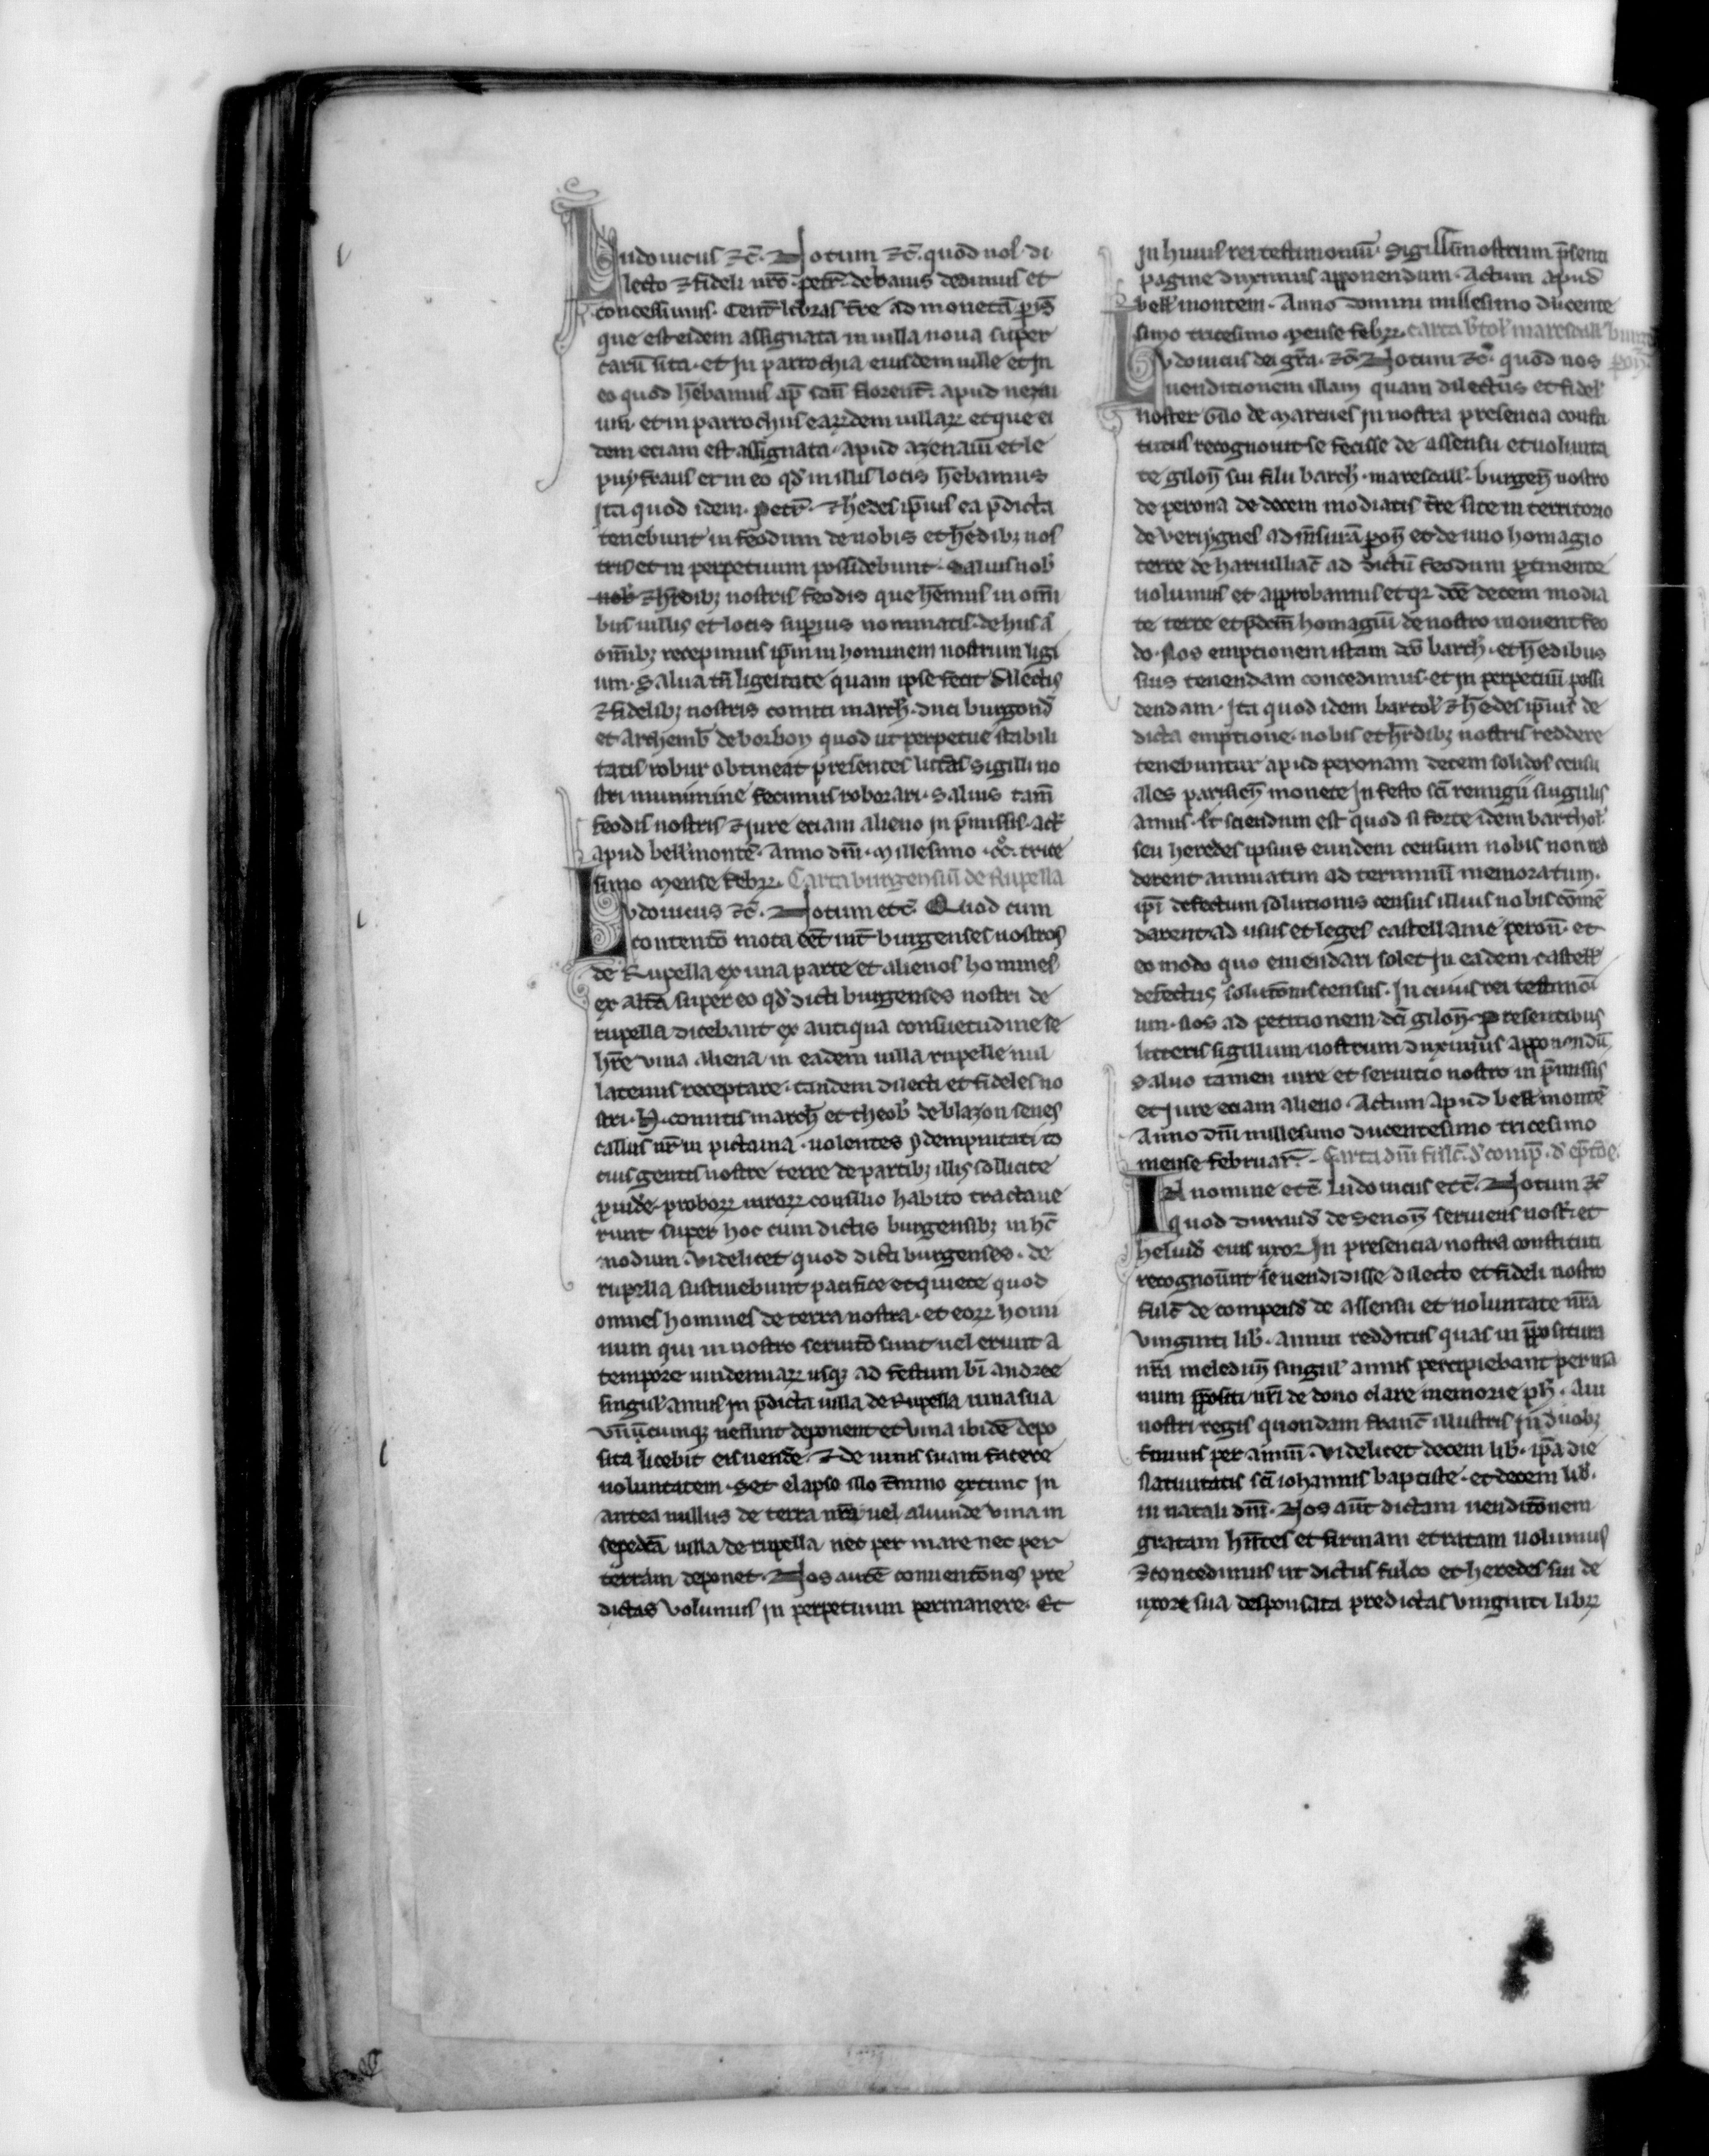 Ludouicus ⁊c̄. Notum ⁊c̄. quod nos di
lecto ⁊ fideli nr̄o petr̄ de baius dedimus et
concessimus. Cent̄ libras tr̄e ad monetā par̄is
que est eidem assignata in uilla noua super
carū sita. et in parrochia eiusdem uille et in
eo quod hēbamus ap̄ sc̄m florent̄. apud
um. et in parrochiis earꝝdem uillarꝝ et que ei
dem eciam est assignata apud azenaiū et le
puy frans et in eo qd̄ in illis locis hēbamus
Ita quod idem. petr̄. ⁊ hēdes ip̄ius ea p̄dicta
tenebunt in feodum de nobis et hēdibꝫ nos
tris et in perpetuum possidebunt. Saluis nob̄
nob̄ ⁊ hr̄dibꝫ nostris feodis que hēmus in om̄i
bus uillis et locis suꝑius nominatis. de hiis
om̄ibꝫ recepimus ip̄m in hominem nostrum ligi
um. Salua tn̄ ligeitate quam ipse fecit dilectis
⁊ fidelibꝫ nostris comiti march̄. duci burgond̄
et Archemb̄ de borbon quod ut perpetue stabili
tatis robur obtineat presentes litt̄as sigilli no
stri munimine fecimus roborari. Saluis tam̄
feodis nostris ⁊ iure eciam alieno in p̄missis. act̄
apud bell̄montē. Anno dn̄i. Millesimo. cc̊. trice
simo mense febrꝝ. Carta burgensiū de Rupella
Lvdouicus ⁊c̄. Notum etc̄. Quod cum
contentō mota eēt int̄ burgenses nostros
de Rupella ex una parte et alienos homines
ex altā super eo qd̄ dicti burgenses nostri de
rupella dicebant ex antiqua consuetudine se
hr̄e vina aliena in eadem uilla rupelle nul
latenus receptare. tandem dilecti et fideles no
stri. H. comitis march̄ et theob̄ de blazon senes
callus nr̄ in pictauia. uolentes ydempnitati to
cius gentis nostre terre de partibꝫ illis sollicite
ꝓuide. proborꝝ uirorꝝ consilio habito tractaue
runt super hoc cum dictis burgensibꝫ in hc̄
modum. Videlicet quod dicti burgenses. de
rupella sustinebunt pacifice et quiete quod
omnes homines de terra nostra. et eorꝝ homi
num qui in nostro seruitō sunt uel erunt a
tempore uindemiarꝝ usqꝫ ad festum bī andree
singul̄ annis in p̄dicta uilla de Rupella uina sua
vn̄cumqꝫ uenerint deponent et vina ibidē depo
sita licebit eis uende. ⁊ de uinis suam facere
uoluntatem. Set elapso illo t̄mino extunc in
antea nullus de terra nr̄a uel aliunde vina in
sepedcā uilla de rupella nec per mare nec per
terram deponet. Nos autē conuentōnes pre
dictas volumus in perpetuum permanere. Et
in huius rei testimoniū. Sigillū nostrum p̄senti
pagine duximus apponendum. Actum apud
bell̄ montem. Anno domini millesimo ducente
simo tricesimo mense febrꝝ. carta b̄tol̄ marescall̄ burg
Lvdouicus dei gr̄a. ⁊c̄. Notum ⁊c̄. quod nos ꝑon̄
uenditionem illam quam dilectus et fidel̄
noster Gilo de marcues in nostra presencia consti
tutus recognouit se fecisse de assensu et uolunta
te gilon̄ sui filii barth̄. marescall̄. burgen̄ nostro
de perona de decem modiatis tr̄e site in territorio
de verignes ad m̄surā ꝑon̄ et de uno homagio
terre de haruilliac̄ ad dictū feodum ꝑtinente
uolumus et approbamus et qꝛ dcē decem modia
te terre et p̄dcm̄ homagiū de nostro mouent feo
do. Nos emptionem istam dcō barth̄. et hēdibus
suis tenendam concedimus. et in perpetuū possi
dendam. Ita quod idem bartol̄ ⁊ hēdes ip̄ius de
dicta emptione. nobis et hr̄dibꝫ nostris reddere
tenebuntur apud peronam decem solidos censu
ales parisien̄ monete in festo sc̄i remigii singulis
annis. Et sciendum est quod si forte idem barthol̄
seu heredes ipsius eundem censum nobis non red
derent annuatim ad terminū memoratum.
ip̄i defectum solutionis census illius nobis cōmē
darent ad usus et leges castellanie peron̄. et
eo modo quo emendari solet in eadem castell̄
defectus solutōnis census. In cuius rei testimoī
um. Nos ad petitionem dcī gilon̄. Presentibus
litteris sigillum nostrum duximus apponendū,
Saluo tamen iure et seruitio nostro in p̄missis
et iure eciam alieno. Actum apud bell̄ montē
Anno dn̄i millesimo ducentesimo tricesimo
mense februar̄. Carta dn̄i fulc̄. d̄ comp̄. d̄
In nomine etc̄. Ludouicus etc̄. Notum ⁊c̄
quod durand̄ de senon̄ seruiens nost̄. et
heluid̄ eius uxor in presencia nostra constituti
recognoūnt se uendidisse dilecto et fideli nostro
fulc̄ de compens̄ de assensu et uoluntate nr̄a
vinginti lib̄. annui redditus quas in p̄positura
nr̄a meledun̄ singul̄ annis percipiebant per ma
num p̄positi nr̄i de dono clare memorie ph̄. aui
nostri regis quondam franc̄ illustris in duobꝫ
t̄minis per annū. Videlicet decem lib̄. ip̄a die
Natiuitatis sc̄i iohannis baptiste. et decem lib̄.
in natali dn̄i. Nos aūt dictam uenditōnem
gratam hn̄tes et firmam et ratam uolumus
⁊ concedimus ut dictus fulco et heredes sui de
uxore sua desponsata predictas vinginti librꝝ